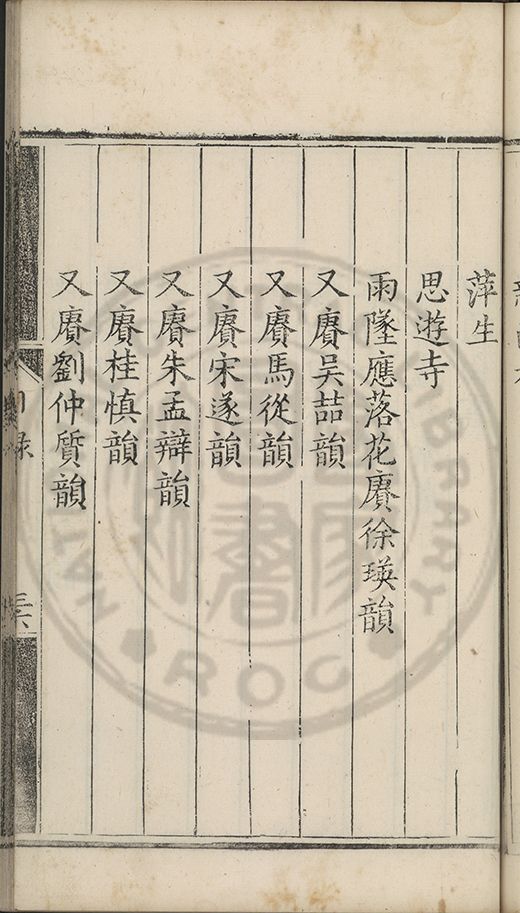 萍生
思遊寺
雨墜應落花賡徐瑛韻
又賡吳喆韻
又賡馬從韻
又賡宋遂韻
又賡朱孟辯韻
又賡桂慎韻
又賡劉仲質韻
目録